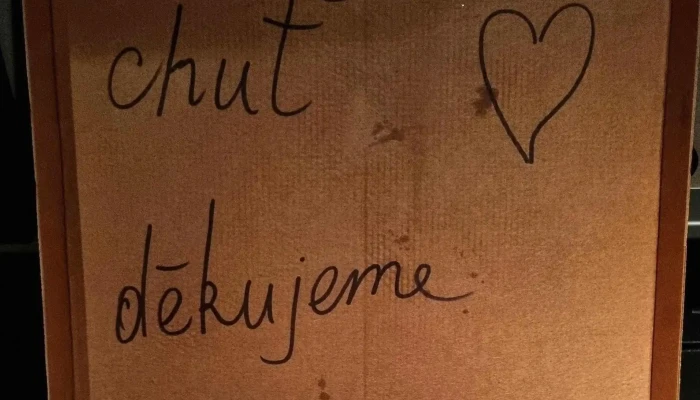 chuť
děkujeme